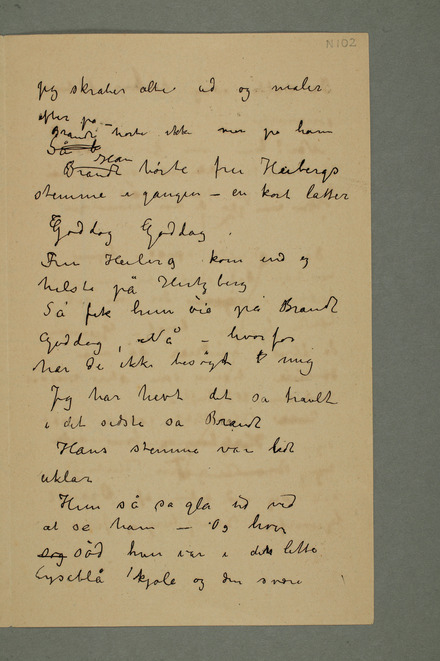 N102
jeg skraber alting ud og maler
efter på –
Brandt hørte ikke mer på ham
Så
Han
Brandt hørte fru Heibergs
stemme i gangen – en kort latter
Goddag Goddag .
Fru Heiberg kom ind og
hilste på Hertzberg
Så fik hun øie på Brandt
Goddag, Nå – hvorfor
har De ikke besøgt mig
Jeg har hevt det så travlt
i det sidste sa Brandt
Hans stemme var lidt
uklar
Hun så sa gla ud ved
at se ham – Og hvor
og sød hun var i det lette
lyseblå kjole og den svære